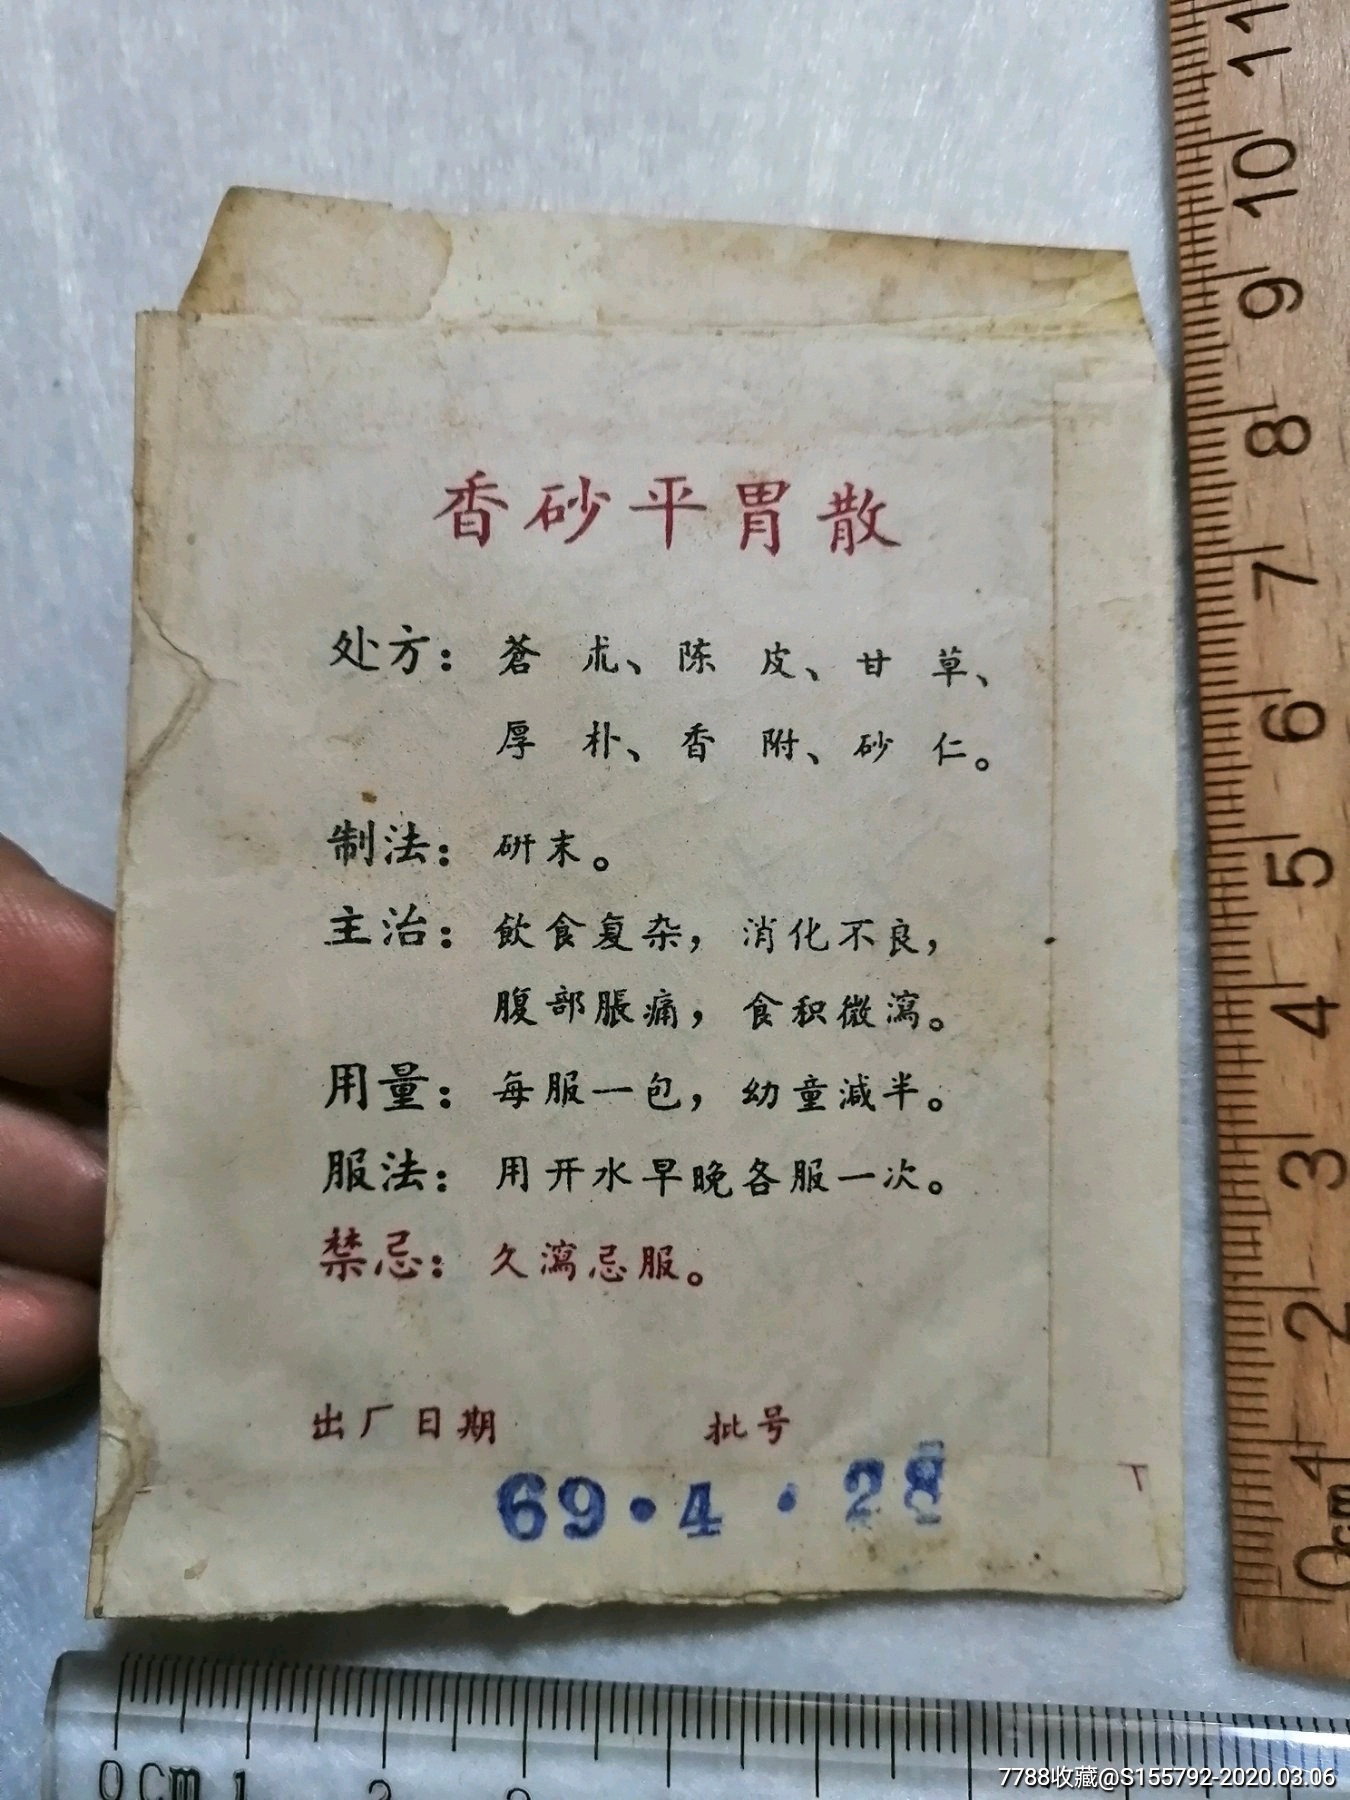 香砂平胃散
处方：蒼术、陈皮、甘草、
厚朴、香附、砂仁。
制法：研末。
主治：飲食复杂，消化不良，
腹部脹痛，食积微瀉。
用量：每服一包，幼童減半。
服法：用开水早晚各服一次。
禁忌：久瀉忌服。
出厂日期 批号
69·4·28
11
10
9
8
7
6
5
4
3
2
1
0cm
0cm 1 2
7788收藏@S155792-2020.03.06